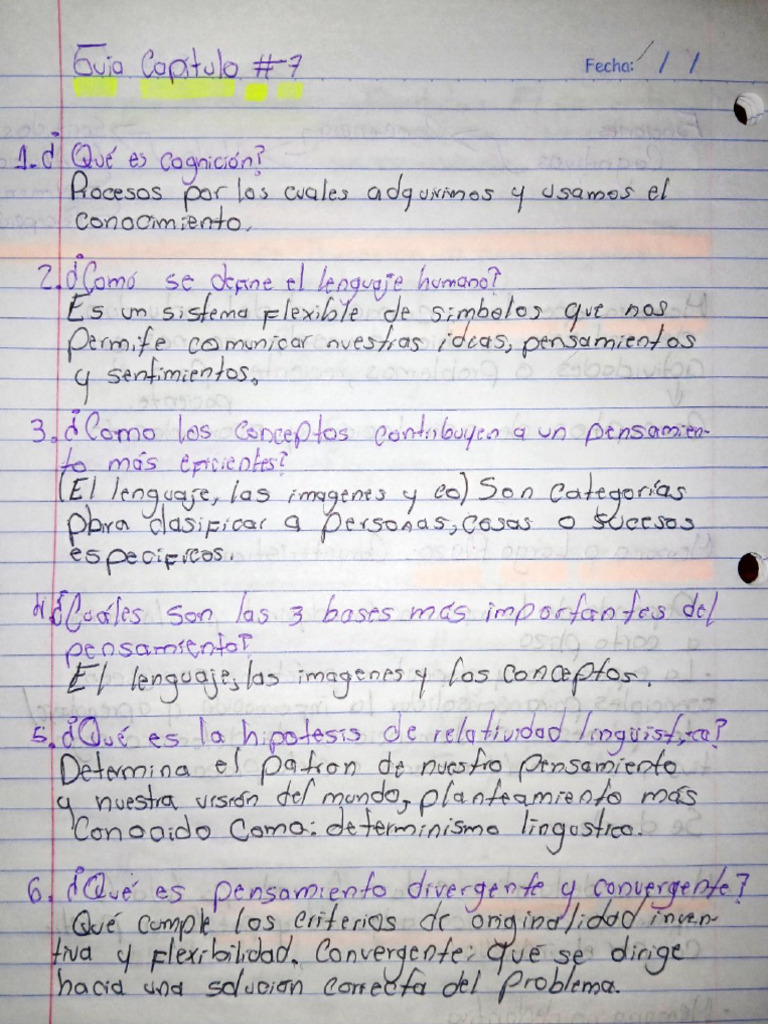 Guia Capítulo #7
Fecha: / /
1. ¿Qué es cognición?
Procesos por los cuales adquirimos y usamos el
conocimiento.
2. ¿Comó se define el lenguaje humano?
Es un sistema flexible de simbolos que nos
permite comunicar nuestras ideas, pensamientos
y sentimientos.
3. ¿Como los conceptos contribuyen a un pensamien-
to más eficientes?
(El lenguaje, las imagenes y co) Son categorías
para clasificar a personas, cosas o sucesos
especificos.
4. ¿Cuáles son las 3 bases más importantes del
pensamiento?
El lenguaje, las imagenes y los conceptos.
5. ¿Qué es la hipotesis de relatividad linguistica?
Determina el patron de nuestro pensamiento
y nuestra visión del mundo, planteamiento más
Conocido Como: determinismo lingustico.
6. ¿Qué es pensamiento divergente y convergente?
Qué cumple los criterios de originalidad inven-
tiva y flexibilidad. Convergente: que se dirige
hacia una solución correcta del problema.